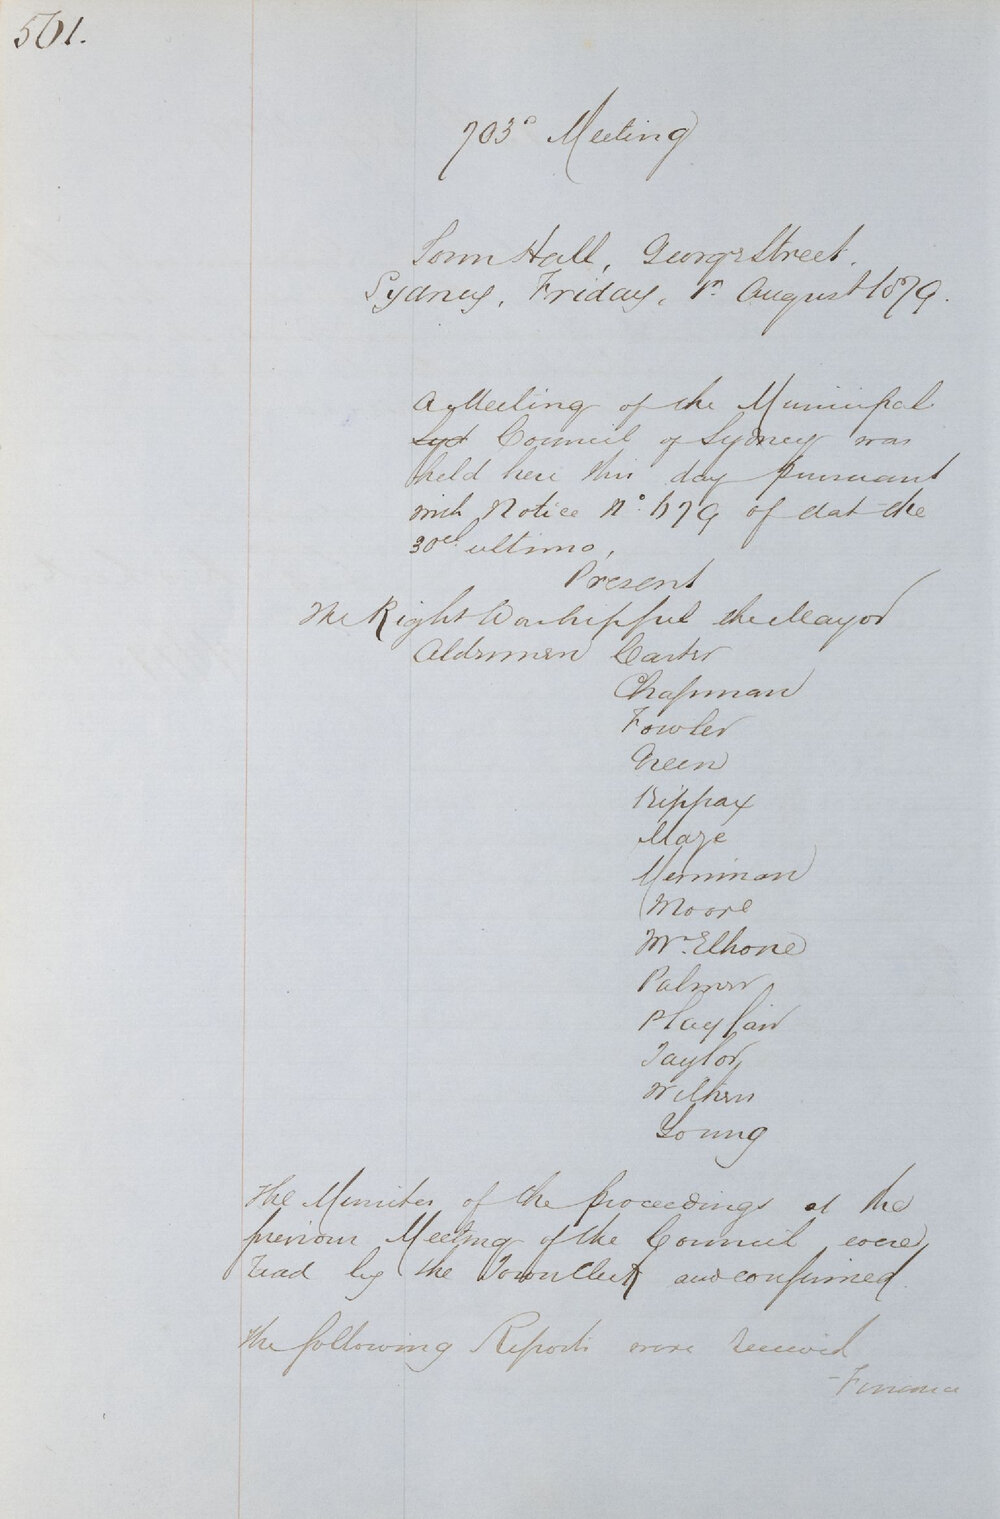 501.
703d Meeting
Town Hall, George Street.
Sydney, Friday, 1st August 1879.
A Meeting of the Municipal
Council of Sydney was
held here this day pursuant
with Notice No. 679 of dat the
30th ultimo,
Present
The Right Worshipful the Mayor
Aldermen Carter
Chapman
Fowler
Green
Kippax
Maze
Merriman
Moore
McElhone
Palmer
Playfair
Taylor
Withers
Young
The Minutes of the proceedings at the
previous Meeting of the Council were
read by the Town Clerk and confirmed.
The following Reports were received
-Finance